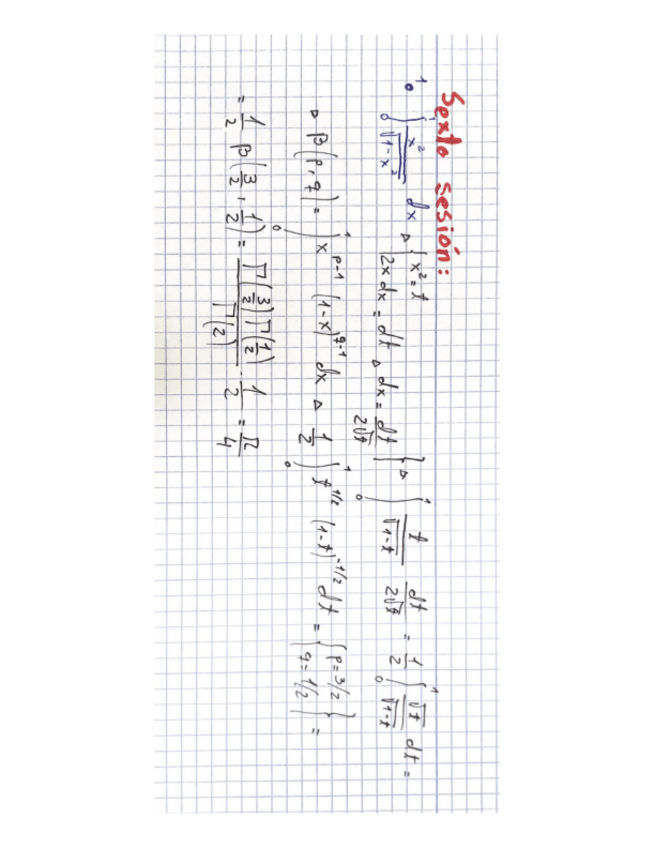 Sexta sesión:
1. ∫₀¹ x²/√(1-x²) dx ▷ { x² = t / 2x dx = dt ▷ dx = dt/(2√t) } ▷ ∫₀¹ t/√(1-t) dt/(2√t) = 1/2 ∫₀¹ √t/√(1-t) dt =
▷ β(p,q) = ∫₀¹ x^(p-1) (1-x)^(q-1) dx ▷ 1/2 ∫₀¹ t^(1/2) (1-t)^(-1/2) dt = { p = 3/2 / q = 1/2 } =
= 1/2 β(3/2, 1/2) = Γ(3/2)Γ(1/2)/Γ(2) · 1/2 = π/4